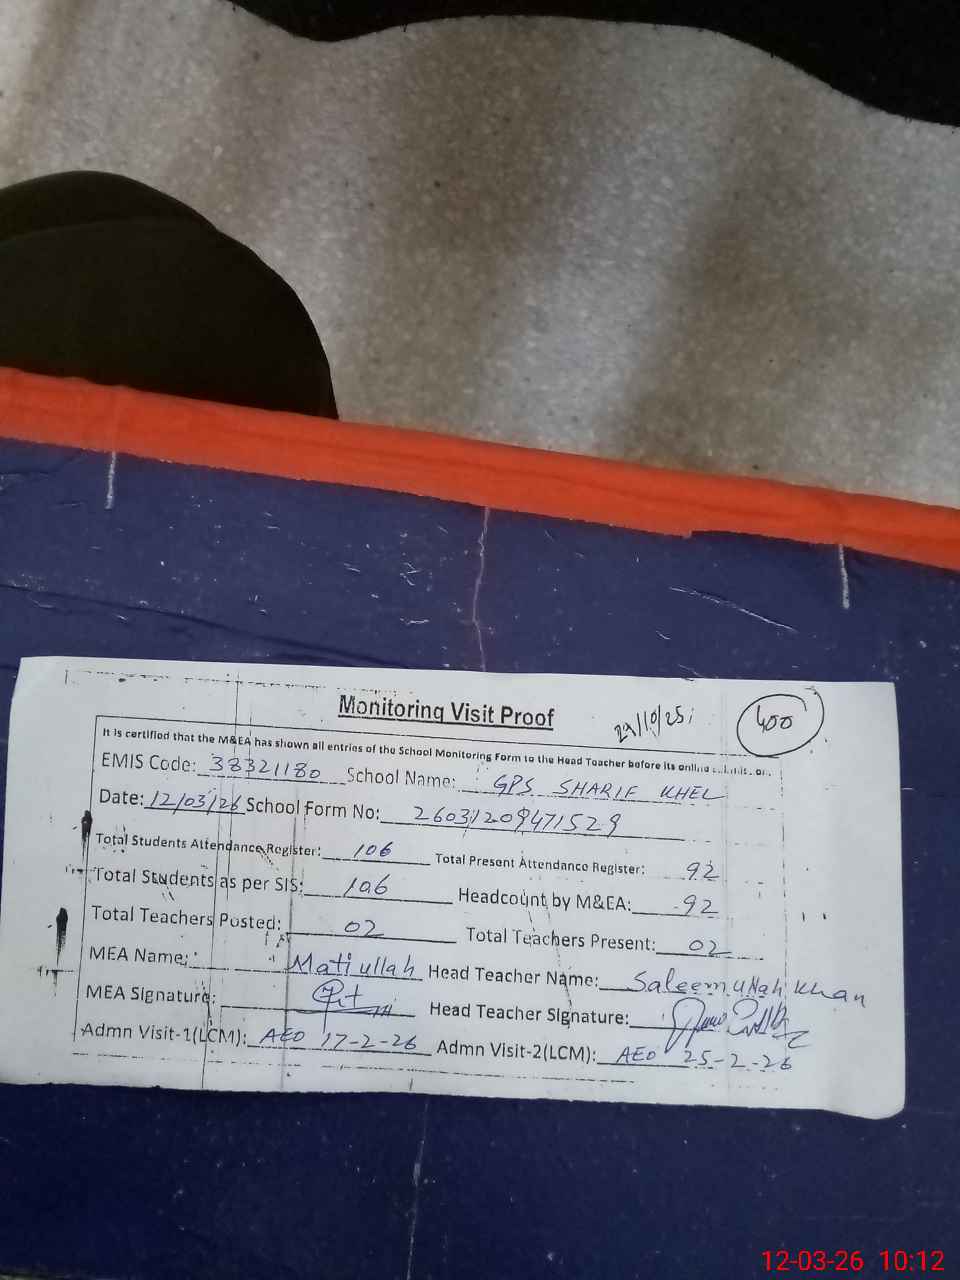 Monitoring Visit Proof
29/10/25
400
It is certified that the M&EA has shown all entries of the School Monitoring Form to the Head Teacher before its online
EMIS Code: 38321180 School Name: GPS SHARIF KHEL
Date: 12/03/26 School Form No: 26031209471529
Total Students Attendance Register: 106 Total Present Attendance Register: 92
Total Students as per SIS: 106 Headcount by M&EA: 92
Total Teachers Posted: 02 Total Teachers Present: 02
MEA Name: Matiullah Head Teacher Name: Saleem ullah Khan
MEA Signature: Head Teacher Signature:
Admn Visit-1(LCM): AEO 17-2-26 Admn Visit-2(LCM): AEO 25-2-26
12-03-26 10:12